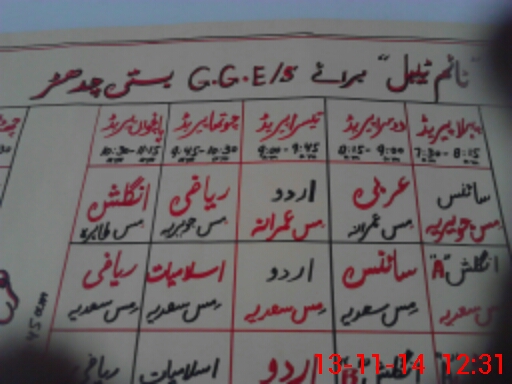 "ٹائم ٹیبل" برائے G.G.E/S بستی چدھڑ
پہلا پیریڈ دوسرا پیریڈ تیسرا پیریڈ چوتھا پیریڈ پانچواں پیریڈ
7:30 - 8:15 8:15 - 9:00 9:00 - 9:45 9:45 - 10:30 10:30 - 11:15
سائنس عربی اردو ریاضی انگلش
مس جویریہ مس عمرانہ مس عمرانہ مس جویریہ مس طاہرہ
انگلش "A" سائنس اردو اسلامیات ریاضی
مس سعدیہ مس سعدیہ مس سعدیہ مس سعدیہ مس سعدیہ
انگلش "B" اردو اسلامیات ریاضی
13-11-14 12:31